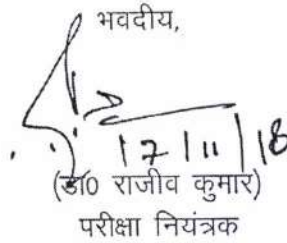 भवदीय,
17/11/18
(डा0 राजीव कुमार)
परीक्षा नियंत्रक